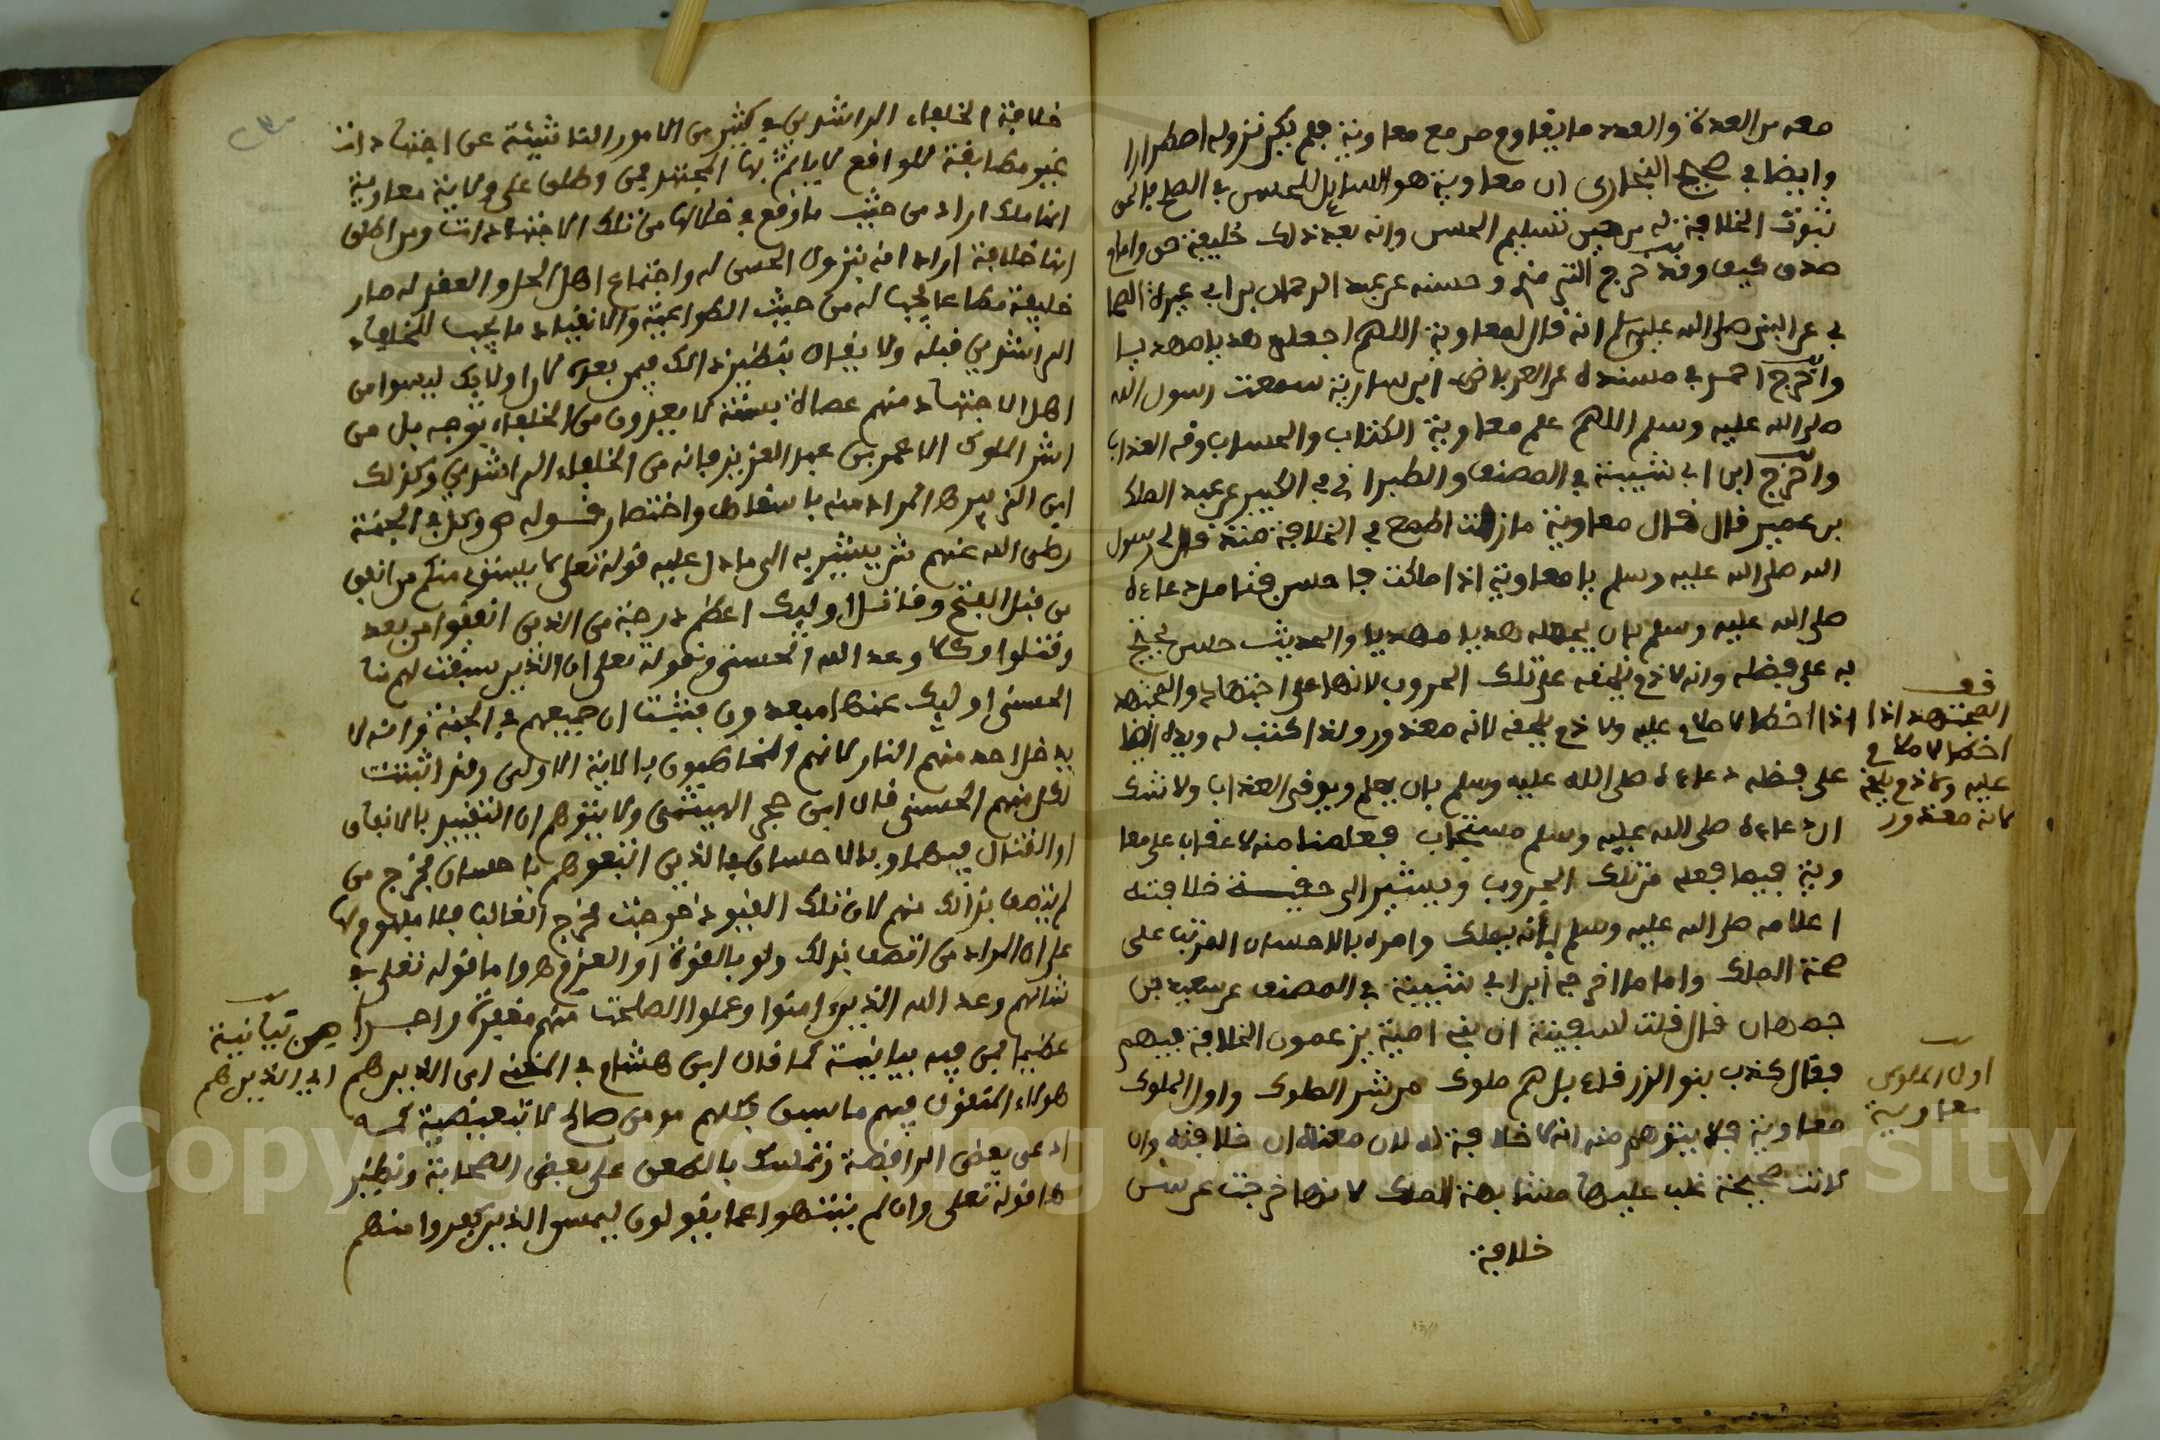 معه من العدة والعدد ما يقاوم مع معاوية فلم يكن نزوله اضطرارا
وايضا في صحيح البخاري ان معاوية هو السايل للحسن في الصلح
ثبوت الخلافة له من حين تسليم الحسن وانه بعد ذلك خليفة حق وامام
صدق كيف وقد خرج الترمذي وحسنه عن عبد الرحمان بن ابي عميرة الصحا
بي عن النبي صلى الله عليه وسلم انه قال لمعاوية اللهم اجعله هديا مهديا
واخرج احمد في مسنده عن العرباض ابن سارية سمعت رسول الله
صلى الله عليه وسلم اللهم علم معاوية الكتاب والحساب وقه العذاب
واخرج ابن ابي شيبة في المصنف والطبراني في الكبير عن عبد الملك
بن عمير قال قال معاوية ما زلت اطمع في الخلافة منذ قال لي رسول
الله صلى الله عليه وسلم يا معاوية اذا ملكت فاحسن فتامل دعاءه
صلى الله عليه وسلم بان يجعله هديا مهديا والحديث حسن يحتج
به على فضله وانه لا ذم يلحقه على تلك الحروب لانها على اجتهاد والمجتهد
اذا اخطا لا ملام عليه ولا ذم يلحقه لانه معذور ولذا كتب له ويدل ايضا
على فضله دعاءه صلى الله عليه وسلم بان يعلم ويوقى العذاب ولا شك
ان دعاءه صلى الله عليه وسلم مستجاب فعلمنا منه لا عقاب على معا
وية فيما فعله من تلك الحروب ويشير الى حقية خلافته
اعلامه صلى الله عليه وسلم بانه يملك وامره بالاحسان المرتب على
صحة الملك واما ما اخرجه ابن ابي شيبة في المصنف عن سعيد بن
جمهان قال قلت لسفينة ان بني امية يزعمون الخلافة فيهم
فقال كذب بنو الزرقاء بل هم ملوك من شر الملوك واول الملوك
معاوية فلا يتوهم منه انه لا خلافة له لان معناه ان خلافته وان
كانت صحيحة غلب عليها مشابهة الملك لانها خرجت عن سنن
خلافة
قف
المجتهد اذا
اخطا لا ملام
عليه ولا ذم يلحقه
لانه معذور
اول الملوك
معاوية
خلافة الخلفاء الراشدين في كثير من الامور الناشئة عن اجتهادات
غير مطابقة للواقع لا ياثم بها المجتهد فمن اطلق على ولاية معاوية
انها ملك اراد من حيث ما وقع في خلالها من تلك الاجتهادات ومن اطلق
انها خلافة اراد انه بنزول الحسن له واجتماع اهل الحل والعقد له صار
خليفة مطاعا يجب له من حيث الطواعية والانقياد ما يجب للخلفاء
الراشدين قبله ولا يقال بنظير ذالك فيمن بعده لان اوليك ليسوا من
اهل الاجتهاد منهم عصاة فسقة لا يعدون من الخلفاء بوجه بل من
اشر الملوك الا عمر بن عبد العزيز فانه من الخلفاء الراشدين وكذلك
ابن الزبير هـ المراد منه باسقاط واختصار قوله ص وكل في الجنة
رضي الله عنهم ش يشير به الى ما دل عليه قوله تعلى لا يستوي منكم من انفق
من قبل الفتح وقاتل اوليك اعظم درجة من الذين انفقوا من بعد
وقتلوا وكلا وعد الله الحسنى وقوله تعلى ان الذين سبقت لهم منا
الحسنى اوليك عنها مبعدون فيثبت ان جميعهم في الجنة وانه لا
يدخل احد منهم النار لانهم المخاطبون بالاية الاولى وقد اثبتت
لكل منهم الحسنى قال ابن حجر الهيتمي ولا يتوهم ان التقييد بالانفاق
او القتال فيها وبالاحسان في الذين اتبعوهم باحسان يخرج من
لم يتصف بذالك منهم لان تلك القيود خرجت مخرج الغالب فلا مفهوم لها
على ان المراد من اتصف بذلك ولو بالقوة او العزم هـ واما قوله تعلى في
شانهم وعد الله الذين امنوا وعملوا الصلحت منهم مغفرة واجرا
عظيما فمن فيه بيانية كما قال ابن هشام في المغني اي الذين هم
هولاء المتقون فيهم ما سبق كلهم مومن صالح لا تبعيضية كما
ادعى بعض الرافضة وتمسك بالطعن على بعض الصحابة ونظير
هـا قوله تعلى وان لم ينتهوا عما يقولون ليمسن الذين كفروا منهم
من بيانية
اي الذين هم
Copyright © King Saud University